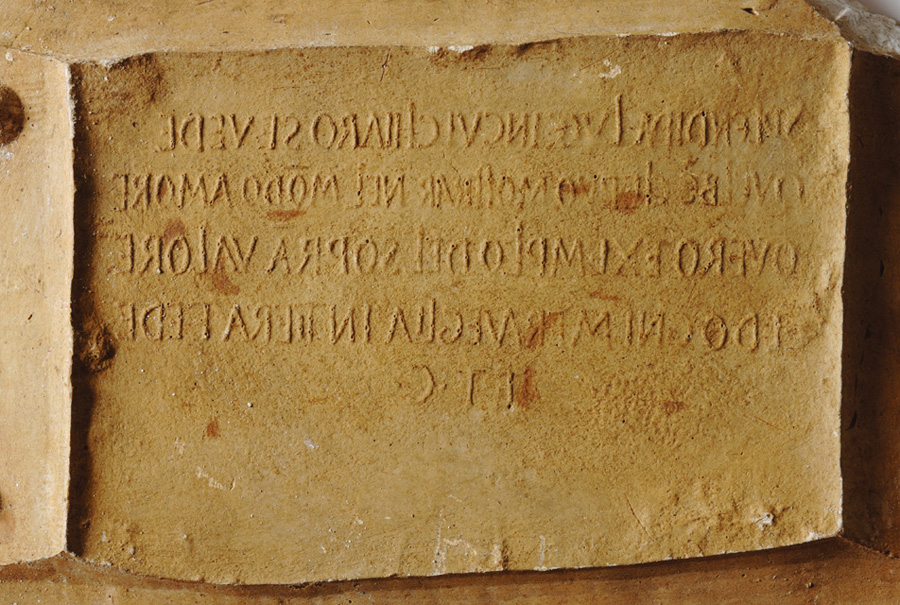 SPLENDIDA LVCE IN CVI CHIARO SI VEDE
QVEL BĒ CHE PVO MOSTRAR NEL MŌDO AMORE
O VERO EXEMPLO DEL SOPRA VALORE
E DOGNI MERAVEGLIA IN TERRA FEDE
ET · C ·